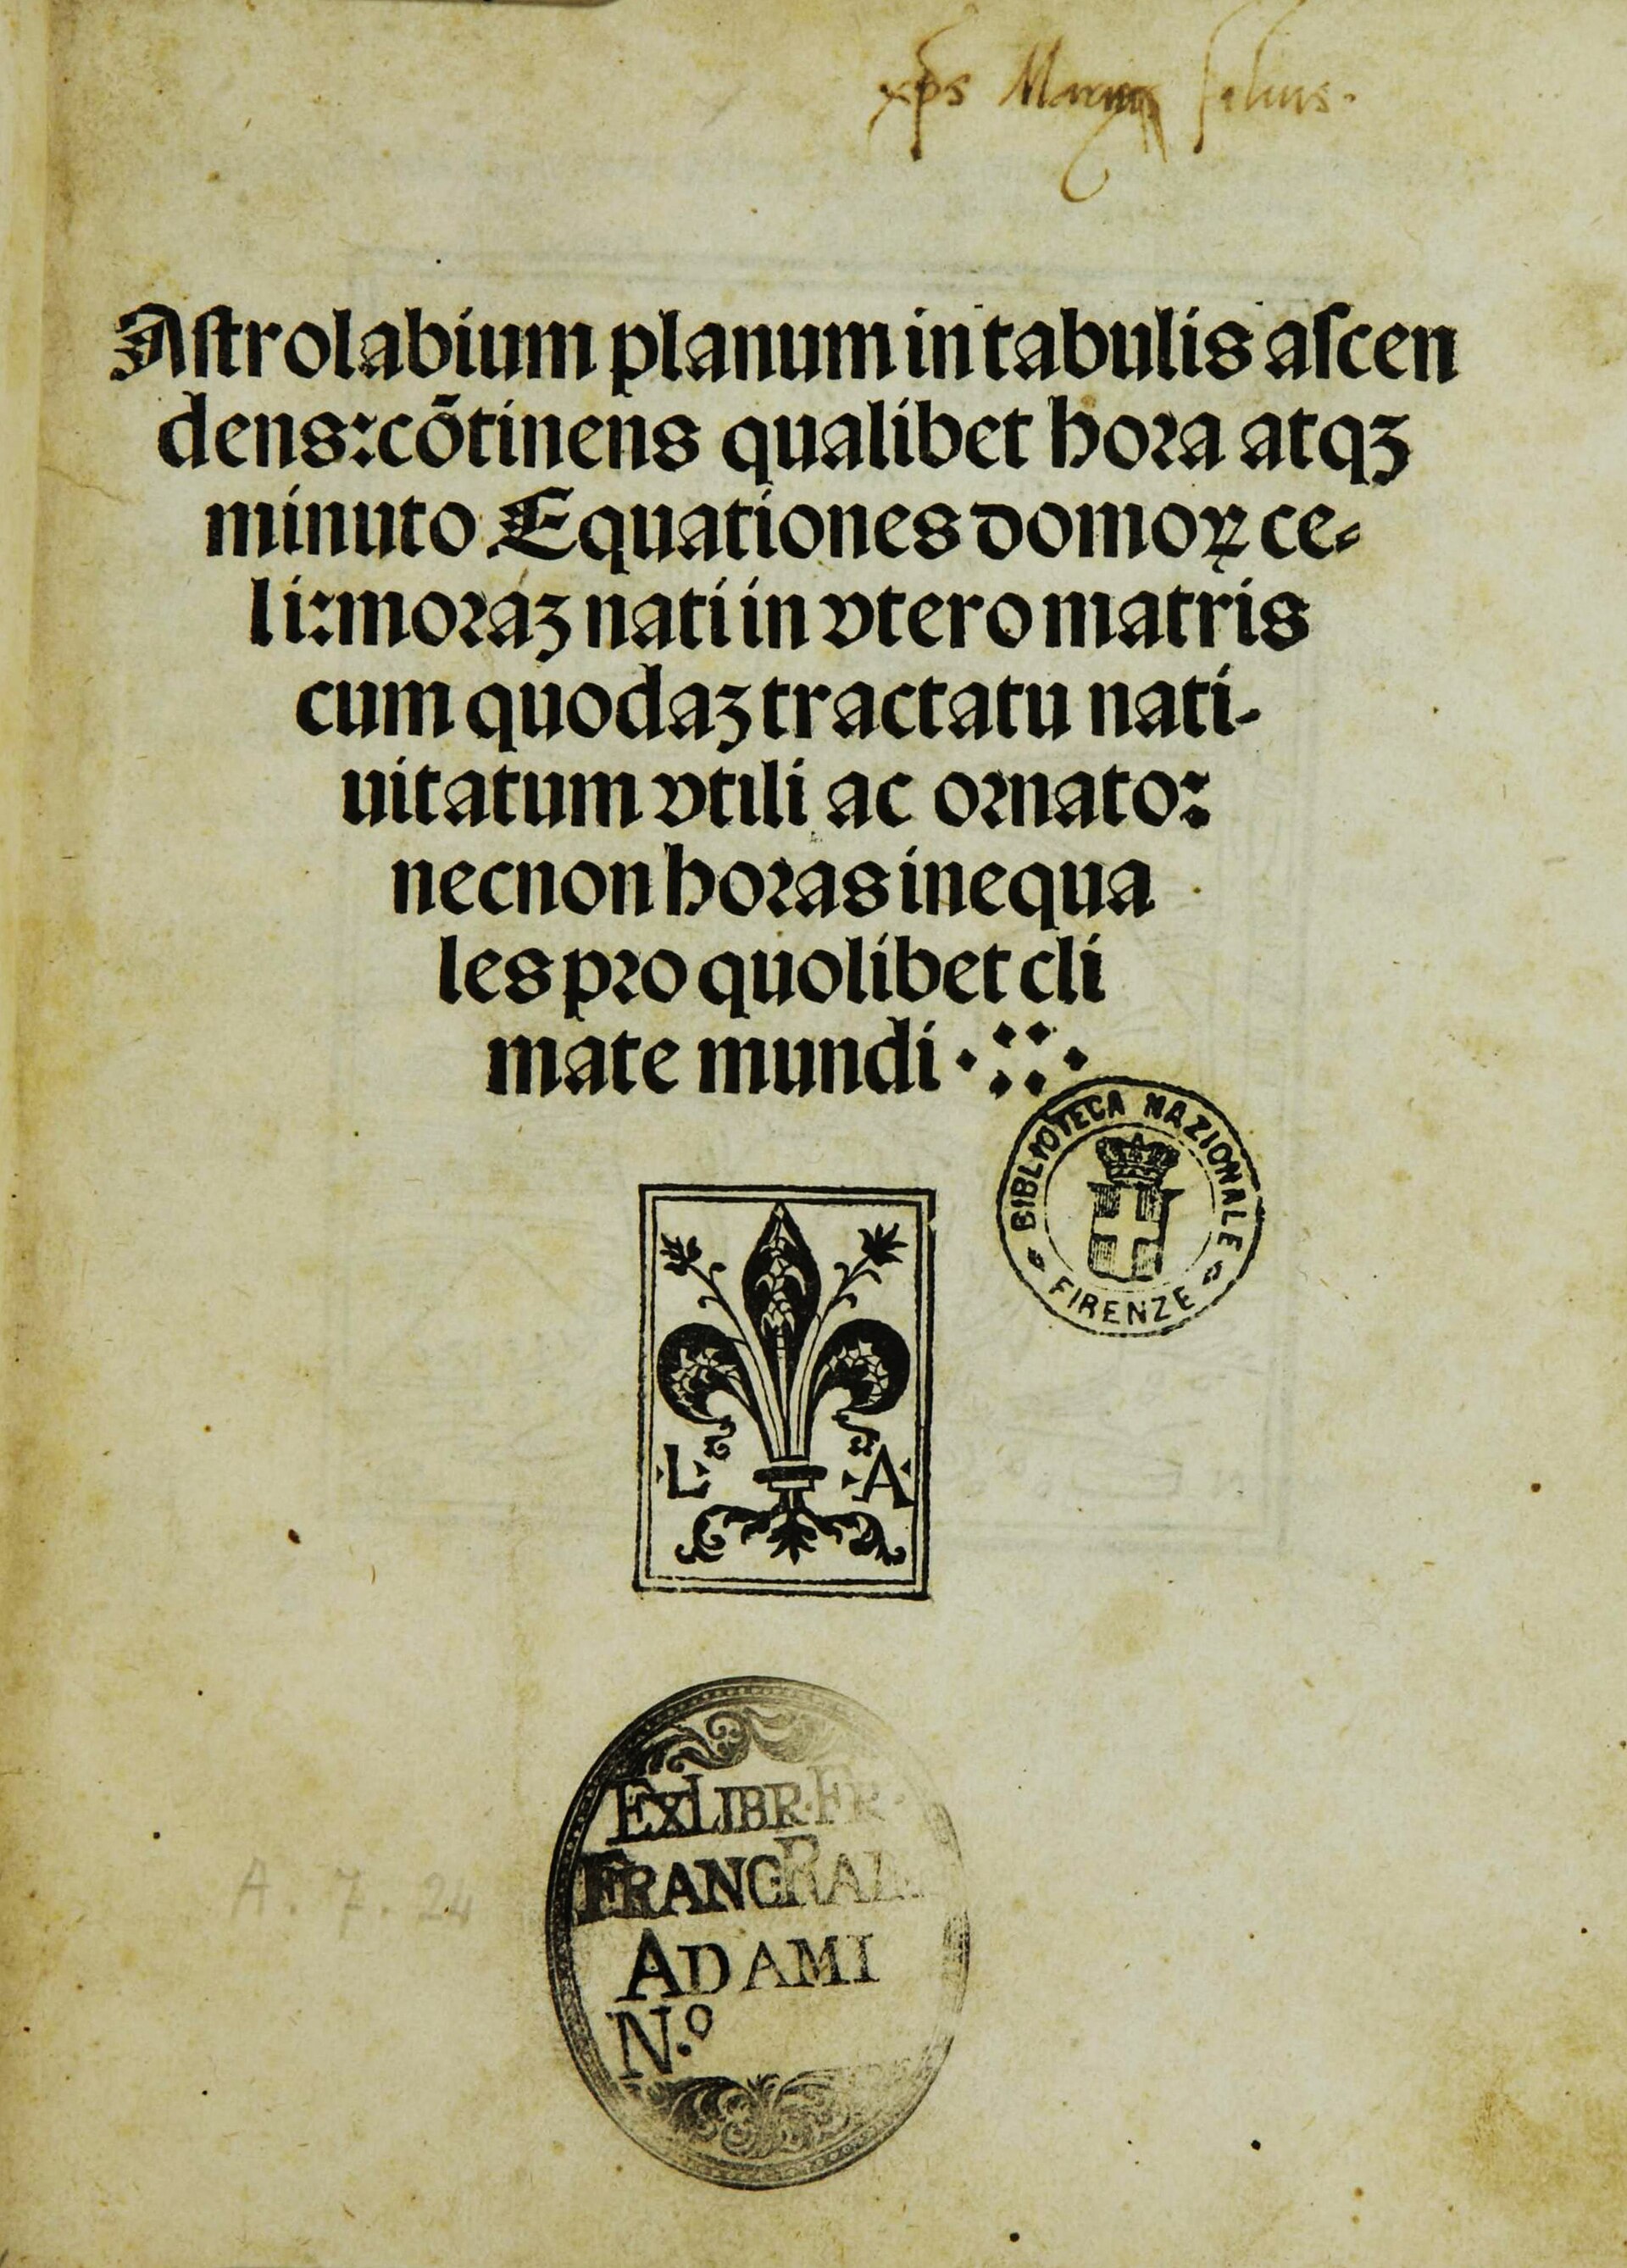 xp̄s Mariæ filius.
Aſtrolabium planum in tabulis aſcen
dens:cōtinens qualibet hora atqꝫ
minuto Equationes domoꝝ ce⸗
li:moraꝫ nati in vtero matris
cum quodaꝫ tractatu nati-
uitatum vtili ac ornato:
necnon horas inequa
les pro quolibet cli
mate mundi
BIBLIOTECA NAZIONALE
FIRENZE
L A
EX LIBR. FR.
FRANC RA
ADAMI
N.º
A. 7. 24